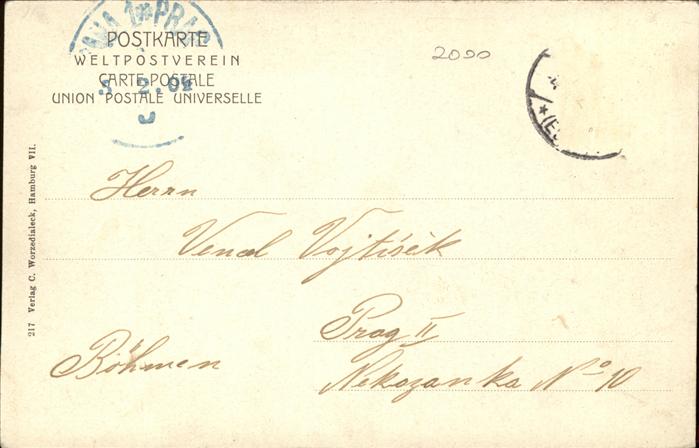 POSTKARTE
WELTPOSTVEREIN
CARTE POSTALE
UNION POSTALE UNIVERSELLE
2000
217 Verlag C. Worzedialeck, Hamburg VII.
Herrn
Vencl Vojtíšek
Prag II
Böhmen
Nekazanka No 10